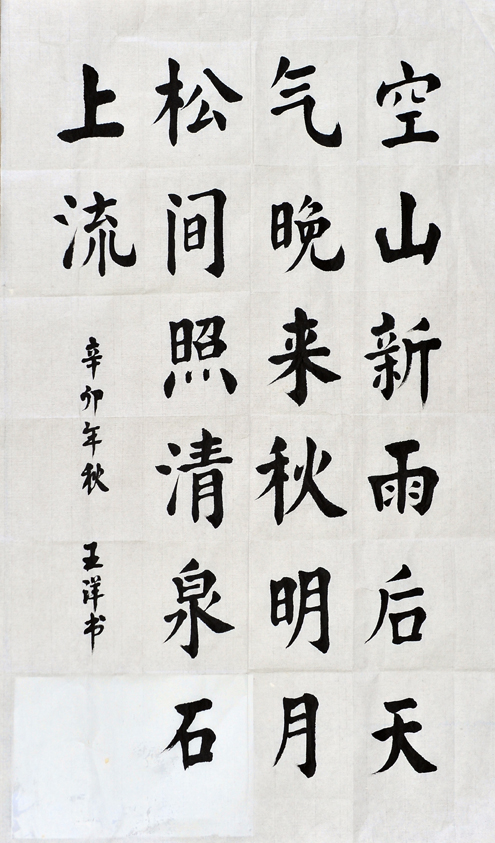 空山新雨后天
气晚来秋明月
松间照清泉石
上流
辛卯年秋 王洋书